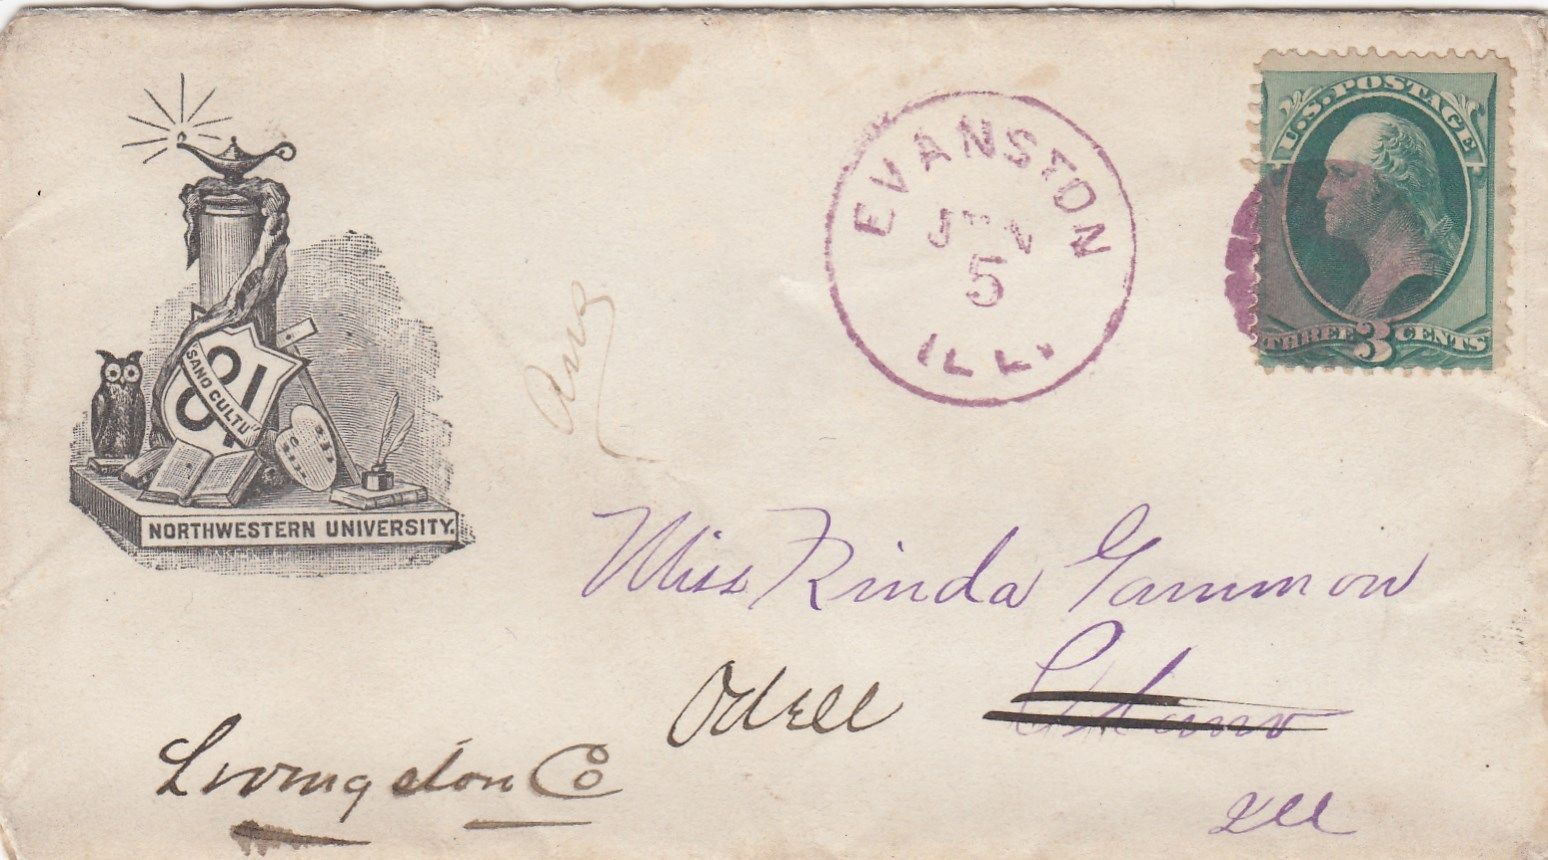 EVANSTON
JUN
5
ILL.
U.S. POSTAGE
THREE 3 CENTS
81
SANO CULTU
NORTHWESTERN UNIVERSITY.
Miss Rinda Gammon
Odell
Livingston Co
Ill